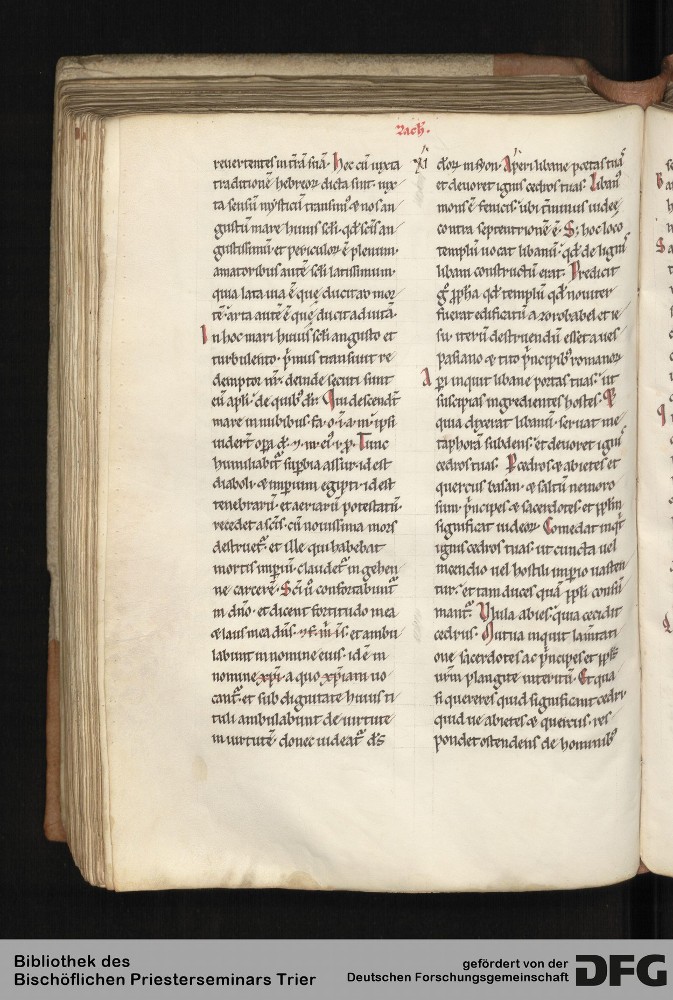 Zach.
reuertentes in t̄rā suā. Hec cū iuxta
traditionē hebreoꝝ dicta sint. iux
ta sensū mysticū transim᷒ & nos an
gustū mare huius scl̄i. qd̓ sc̄is an
gustissimū et periculoꝝ ē plenum.
amatoribus autē scl̄i latissimum.
quia lata uia ē que ducit ad mor
tē. arta autē ē que ducit ad uitā.
In hoc mari huius scl̄i angusto et
turbulento. p̄mus transiuit re
demptor nr̄. deinde secuti sunt
eū apl̄i. de quib᷒ dr̄. Qui descendt̄
mare in nauibus. fa. o. i. a. m̄. ipsi
uidert̄ oꝑa dī. ⁊. m̄. ei᷒. i. ꝓ. Tunc
humiliabit̄ suꝑbia assur. id est
diaboli. & imperium egipti. id est
tenebrarū. et aeriarū potestatū.
recedet a sc̄is. cū nouissima mors
destruet᷑. et ille qui habebat
mortis imperiū. claudet᷑ in gehen
ne carcerē. Sc̄i ū confortabunt᷑
in dn̄o. et dicent fortitudo mea
& laus mea dn̄s. et ambu
labunt in nomine eius. id ē in
nomine xp̄i. a quo xp̄iani uo
cant᷑. et sub dignitate huius ti
tuli ambulabunt de uirtute
in uirtutē. donec uideat᷑ d̄s
XI deoꝝ in syon. Aperi libane portas tuas
et deuoret ignis cedros tuas. Liban᷒
mons ē fenicis. ubi t̄minus iudee
contra septentrionē ē. S; hoc loco
templū uocat libanū. qd̓ de lignis
libani constructū erat. Predicit
gͦ ꝓpha qd̓ templū qd̓ nouiter
fuerat edificatū a zorobabel et ie
su. iterū destruendū esset a ues
pasiano & tito p̄ncipib᷒ romanoꝝ
Aperi inquit libane portas tuas. ut
suscipias ingredientes hostes. Et
quia dixerat libanū. seruat me
taphorā subdens. et deuoret ignis
cedros tuas. Ꝑ cedros & abietes et
quercus basan. & saltū nemoro
sum. p̄ncipes & sacerdotes et ppl̄m
significat iudeoꝝ. Comedat inqt̄
ignis cedros tuas. ut cuncta uel
incendio uel hostili imperio uasten
tur. et tam duces quā ppl̄i consu
mant᷑. Vlula abies. quia cecidit
cedrus. Mutua inquit lam̄tati
one sacerdotes ac p̄ncipes et ppl̄s
ur̄m plangite interitū. Et qua
si quereres quid significant cedri.
quid ue abietes & quercus. res
pondet ostendens de hominib᷒
Bibliothek des
Bischöflichen Priesterseminars Trier
gefördert von der
Deutschen Forschungsgemeinschaft
DFG